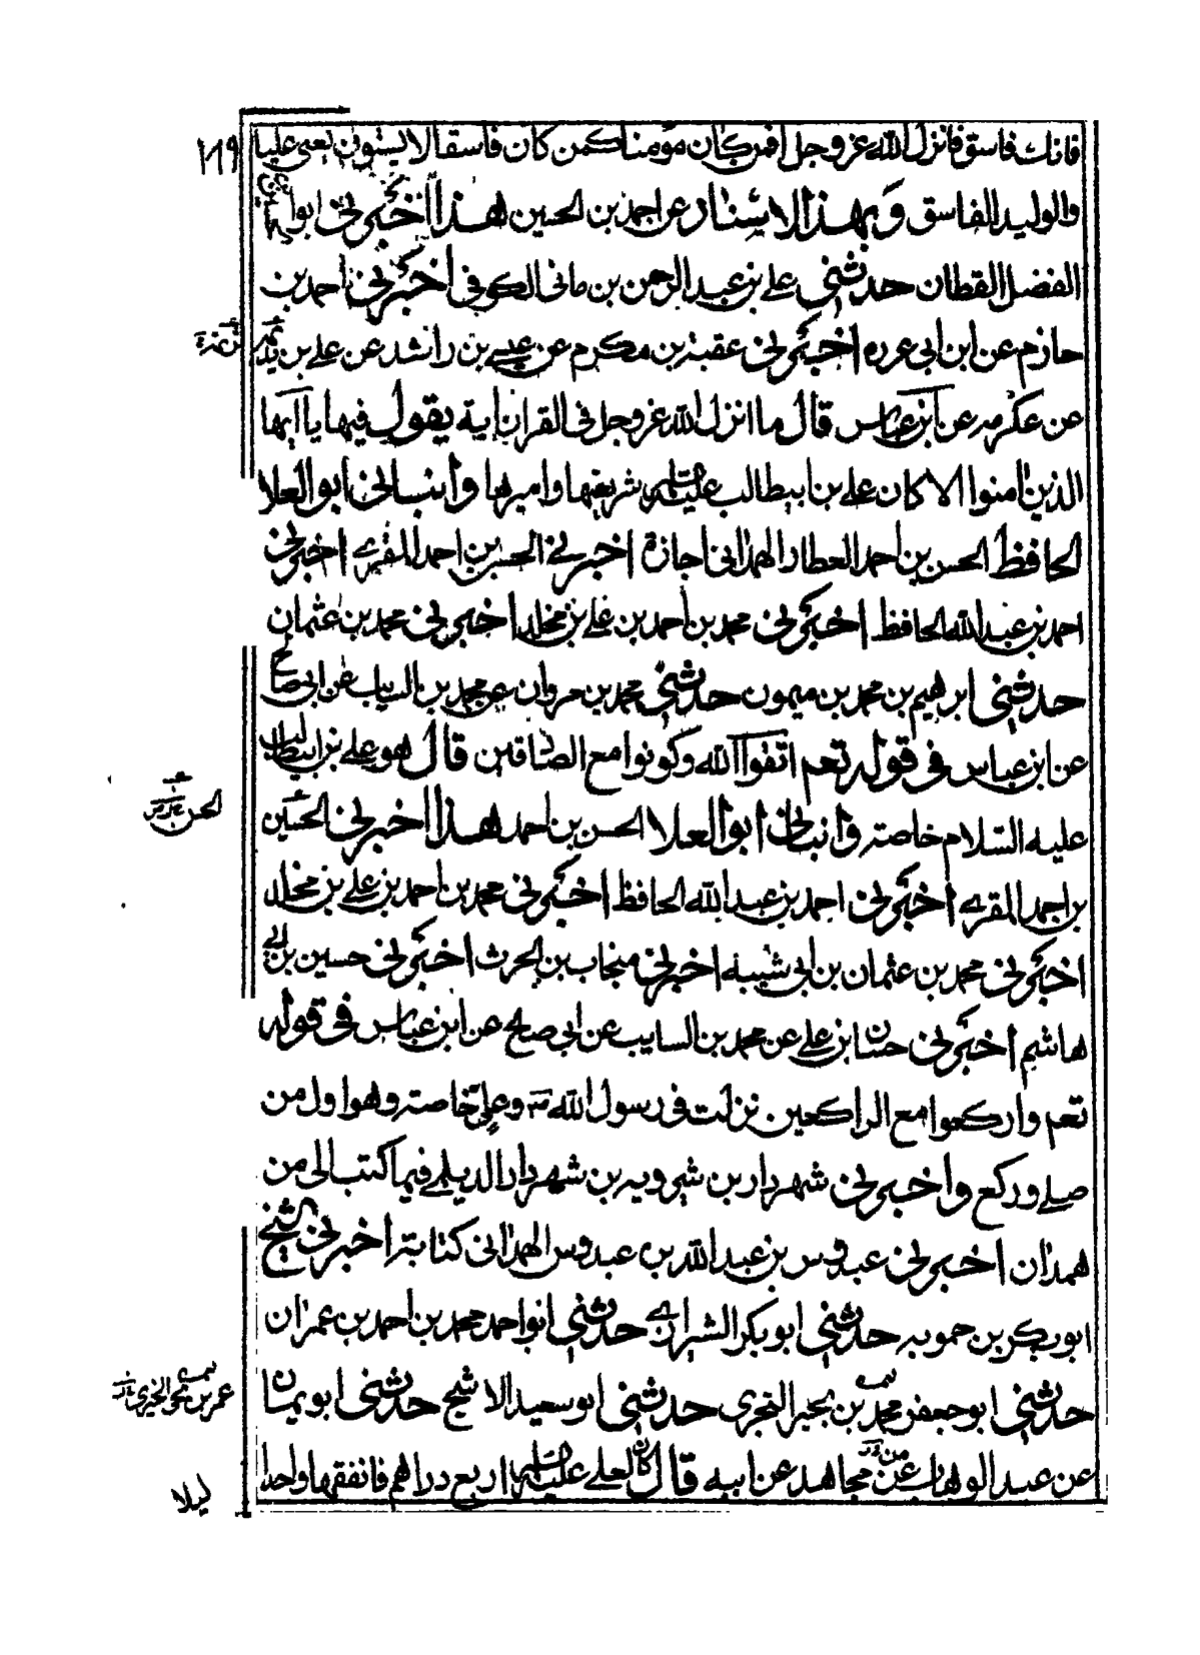 فانك فاسق فانزل الله عز وجل افمن كان مؤمنا كمن كان فاسقا لا يستون يعنى عليا
والوليد الفاسق وبهذا الاسناد عن احمد بن الحسين هذا اخبرنى ابو الحسين
الفضل القطان حدثنى على بن عبد الرحمن بن ماتى الكوفى اخبرنى احمد بن
حازم عن ابن ابى عرزه اخبرنى عقبة بن مكرم عن عيسى بن راشد عن على بن بذيمه
عن عكرمه عن ابن عباس قال ما انزل الله عز وجل فى القران اية يقول فيها يا ايها
الذين امنوا الا كان على بن ابيطالب عليه السلم شريفها واميرها وانبانى ابو العلا
الحافظ الحسن بن احمد العطار الهمدانى اجازة اخبرنى الحسن بن احمد المقرى اخبرنى
احمد بن عبد الله الحافظ اخبرنى محمد بن احمد بن على بن مخلد اخبرنى محمد بن عثمان
حدثنى ابرهيم بن محمد بن ميمون حدثنى محمد بن مروان عن محمد بن السايب عن ابى صالح
عن ابن عباس فى قوله تعم اتقوا الله وكونوا مع الصادقين قال هو على بن ابيطالب
عليه السلام خاصة وانبانى ابو العلا الحسن بن احمد هذا اخبرنى الحسين
بن احمد المقرى اخبرنى احمد بن عبد الله الحافظ اخبرنى محمد بن احمد بن على بن مخلد
اخبرنى محمد بن عثمان بن ابى شيبه اخبرنى منجاب بن الحرث اخبرنى حسين بن ابى
هاشم اخبرنى حسان بن على عن محمد بن السايب عن ابى صالح عن ابن عباس فى قوله
تعم واركعوا مع الراكعين نزلت فى رسول الله ص وعلى خاصة وهو اول من
صلى وركع واخبرنى شهردار بن شيرويه بن شهردار الديلمى فيما كتب الى من
همدان اخبرنى عبدوس بن عبد الله بن عبدوس الهمدانى كتابة اخبرنى الشيخ
ابو بكر بن حمويه حدثنى ابو بكر الشيرازى حدثنى ابو احمد محمد بن احمد بن عمران
حدثنى ابو جعفر محمد بن بجير الفجرى حدثنى ابو سعيد الاشج حدثنى ابو يمان
عن عبد الوهاب عن مجاهد عن ابيه قال كان لعلى عليه السلم اربع دراهم فانفقها واحدا
ليلا